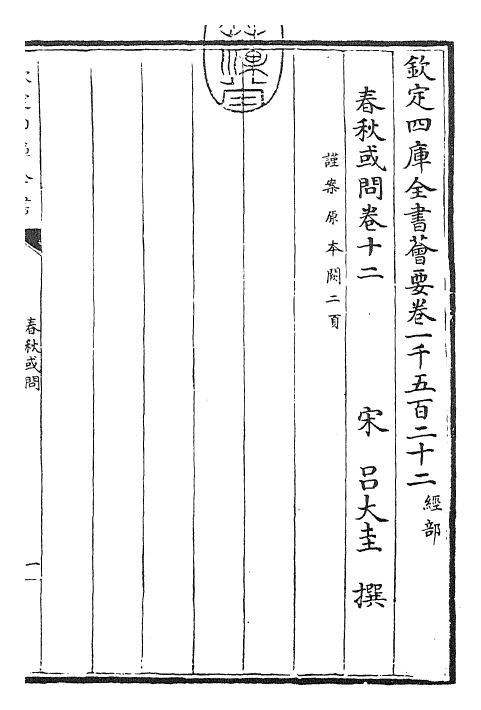 欽定四庫全書薈要卷一千五百二十二 經部
春秋或問卷十二
宋 呂大圭 撰
謹案原本闕二頁
春秋或問
一